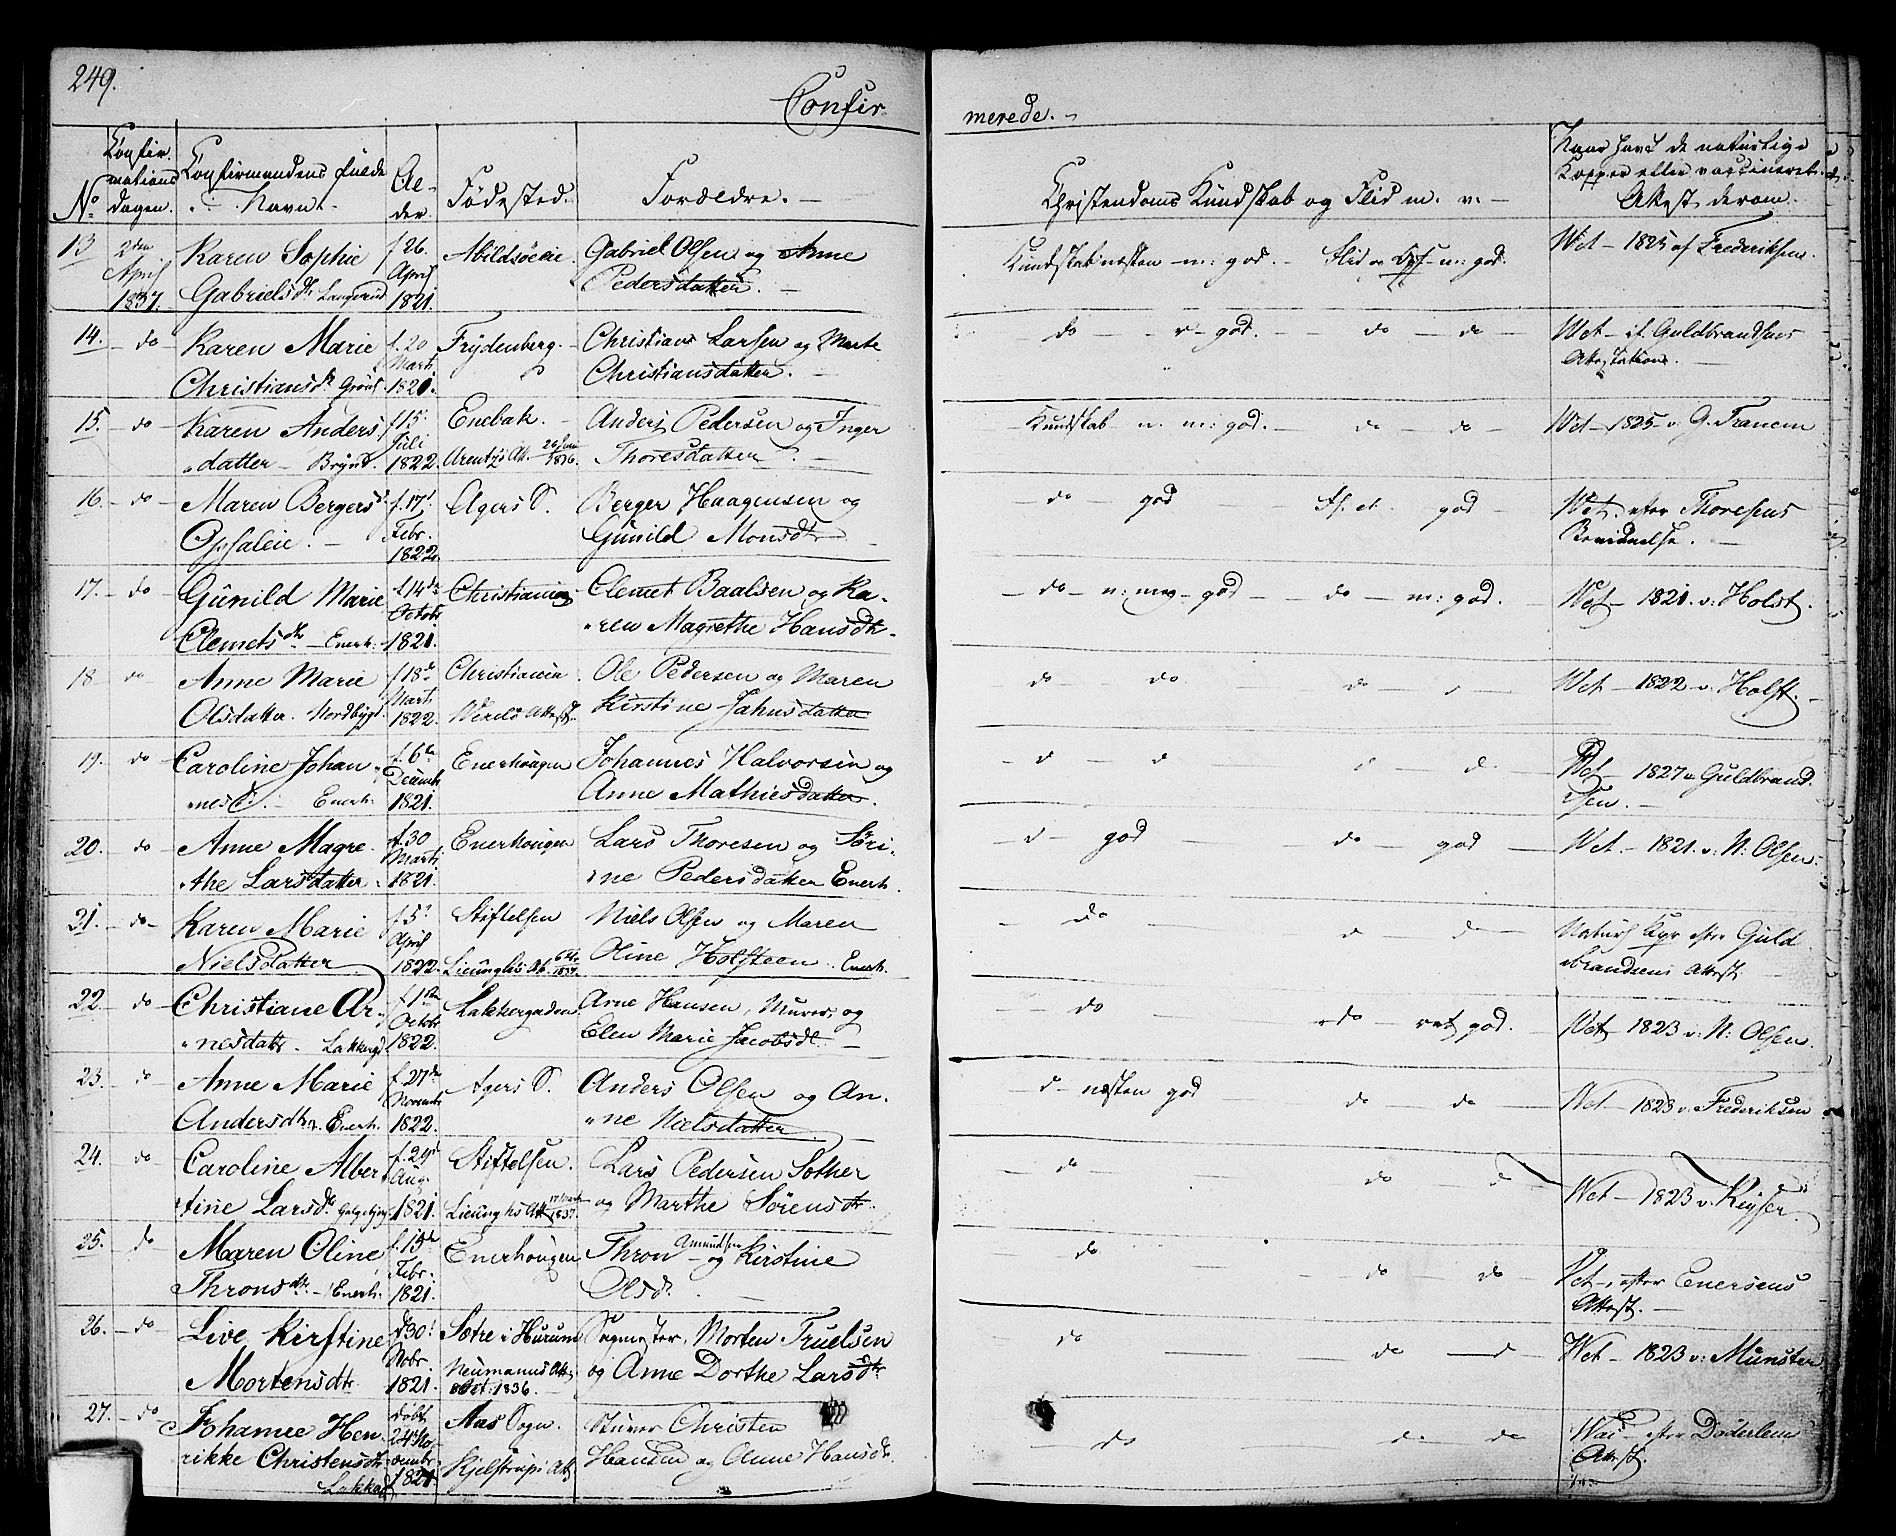 249.
Confir
merede. -
No
Confir-
mations
dagen.
Confirmandens fulde
Navn.
Al-
der
Fødested.
Forældre. -
Christendoms Kundskab og Flid m. v. -
Naar havt de naturlige
Kopper eller vaccineret
Attest derom.
13
2den
April
1837.
Karen Sophie
Gabrielsdr Langerud
f 26.
April
1821.
Abildsøeie.
Gabriel Olsen og Anne
Pedersdatter. -
Kundskab næsten m: god. - Flid og Opf - m: god.
Vct - 1825 af Frederiksen.
14. - do
Karen Marie
Christiansdr
f. 20
Marti
1821.
Frydenberg. -
Christian Larsen og Marte
Christiansdatter. -
do - v - god. - do - do
Vct - Guldbrandsens
Attestation. -
15. - do -
Karen Anders
"datter - Brynt.
f 15.
Juli
1822.
Enebak. -
Arentz's Att. 1836.
Anders Pedersen og Inger
Thoresdatter. -
Kundskab n. m: god. - do - do -
Vct - 1825 - v G. Fransen
16. - do -
Maren Bergersd.
Opsaleie. -
f. 17d
Febr.
1822.
Agers S.
Berger Haagensen og
Gunild Monsdtr -
- do - god - Fl. et. god -
Vct. efter Thoresens
Bevidnelse. -
17. - do -
Gunild Marie
Clemetsdtr - Enerh.
f. 14de
Octobr
1821.
Christiania
Clemet Baalsen og Ka-
"ren Magrethe Hansdtr.
- do - n: meg - god - do - m: god. -
Vct - 1821. v: Holst.
18 do
Anne Marie
Olsdatter. Nordbygd
f 18d
Marti
1822.
Christiania
Wexels Attest.
Ole Pedersen og Maren
Kirstine Jahnsdatter
- do - do. - do
Vct - 1822 v. Holst. -
19. - do -
Caroline Johan
"nesd. - Enerh.
f. 6te
Decembr
1821.
Enerhougen
Johannes Halvorsen og
Anne Mathiesdatter.
Vct - 1827 v Guldbrand
sen. -
20. - do -
Anne Magre-
"the Larsdatter.
f. 30
Marti
1821.
Enerhougen
Lars Thoresen og Søri-
"ne Pedersdatter Enerh.
god - do - god -
Vct. - 1821. v: N: Olsen.
21. - do -
Karen Marie
Nielsdatter
f. 5t
April
1822.
Stiftelsen
Lieunghs Att. 1837
Niels Olsen og Maren
Oline Holsteen. Enerh.
- do
Naturl Kpr efter Guld
brandsens Attest. -
22. do
Christiane Ar-
"nesdatr. Lakkergd
f 1ste
Octobr
1822.
Lakkergaden
Arne Hansen, Murer, og
Elen Marie Jacobsdt. -
- do - do - ret god. -
Vct 1823 v: N: Olsen.
23. - do
Anne Marie
Andersdtr. Enerh.
f. 27de
Novembr
1822.
Agers S.
Anders Olsen og An-
"ne Nielsdatter. -
d - næsten god - do - do -
Vct - 1823 v. Frederiksen
24. do
Caroline Alber
"tine Larsdr Galgebjerg
f. 29d
Aug.
1821.
Stiftelsen.
Lieunghs Att 17 Marts 1837.
Lars Pedersen Sother
og Marthe Sørensdtr.
- do - do - do
Vct - 1823 v. Keyser.
25. do
Maren Oline
Thronsdtr. - Enerh.
f. 13de
Febr.
1821.
Enerhougen
Thron Amundsen og Kirstine
Olsdt. -
do - do - do -
Vct -, efter Enersens
Attest. -
26. - do
Live Kirstine
Mortensdtr
d 30t
Nobr.
1821.
Sætre i Hurum
Neumanns Att.
8 Oct. 1836. -
Sagmester, Morten Truelsen
og Anne Dorthe Larsdtr
do - do - d
Vct - 1823 v: Munster
27. - do
Johanne Hen-
rikke Christensdtr
Lakkegd
døbt
24 No
vembr
1821
Aas Sogn.
Kjelstrups Att.
Stuver Christen
Hansen og Anne Hansdtr.
- do - do - do
Vac - efter Døderleins
Attest.